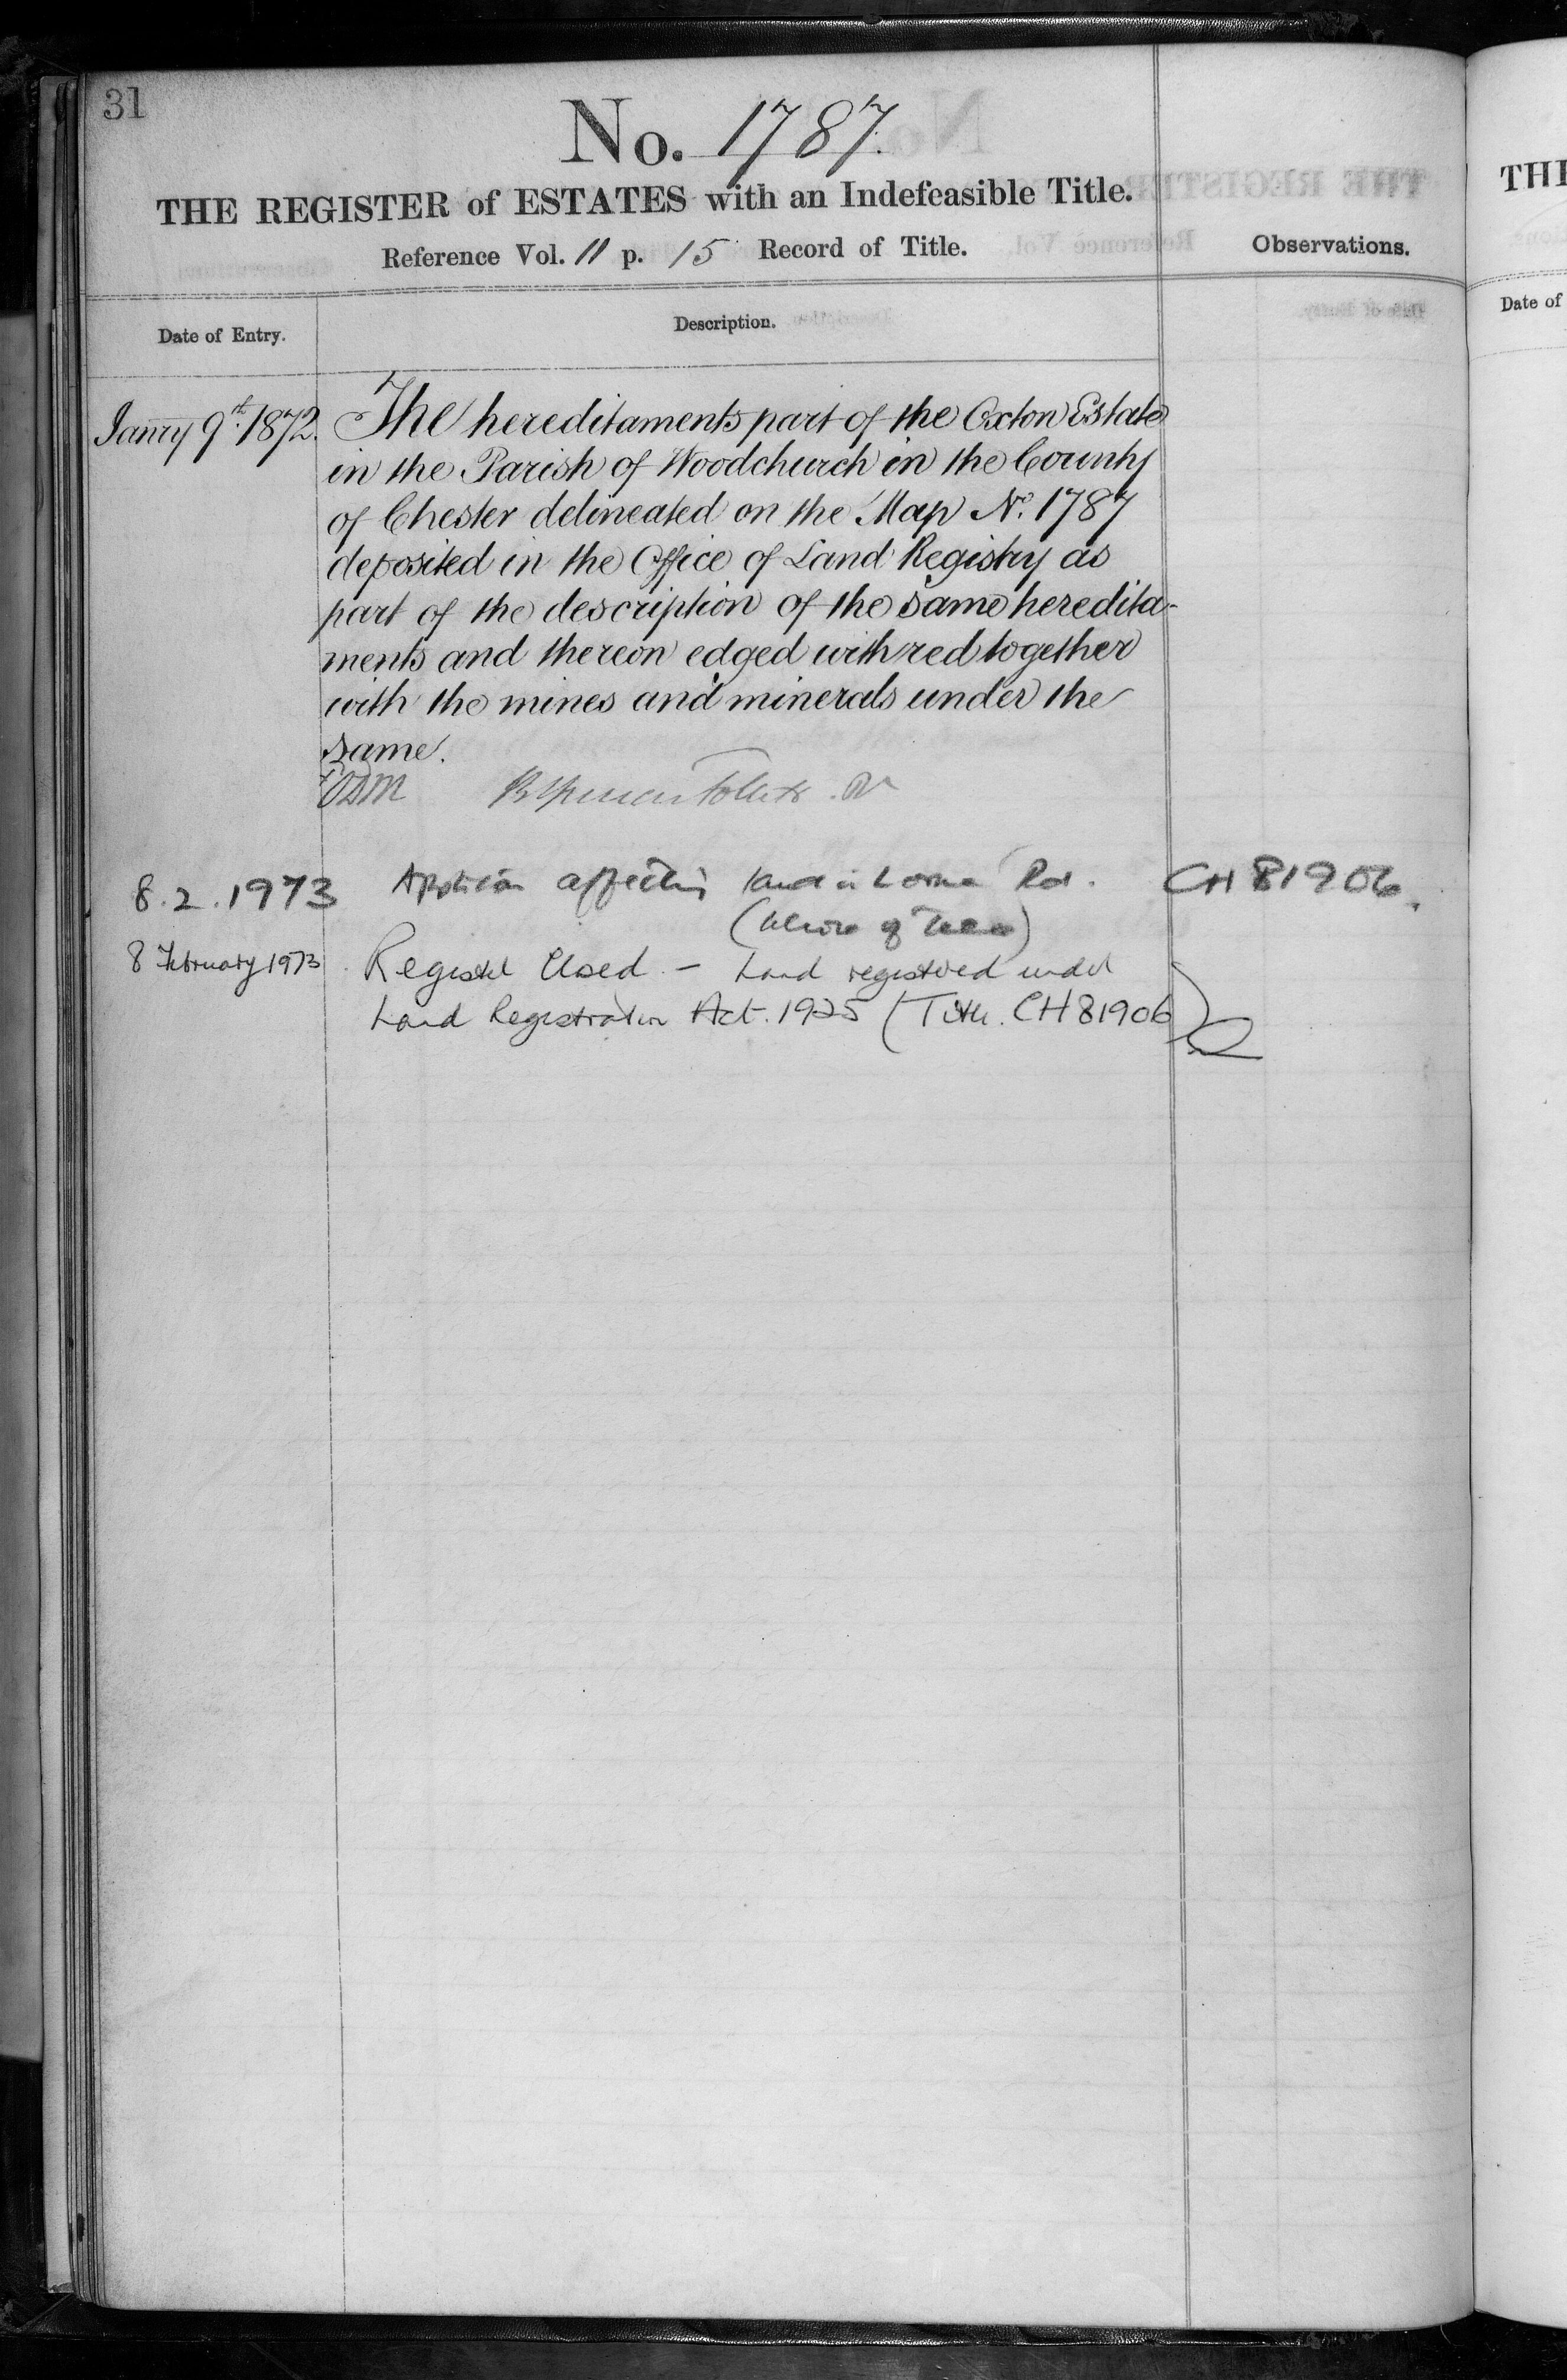 31
No. 1787.
THE REGISTER of ESTATES with an Indefeasible Title.
Reference Vol. 11 p. 15 Record of Title.
Observations.
Date of Entry.
Description.
Janry 9th. 1872. The hereditaments part of the Oxton Estate
in the Parish of Woodchurch in the County
of Chester delineated on the Map No. 1787
deposited in the Office of Land Registry as
part of the description of the same heredita-
ments and thereon edged with red together
with the mines and minerals under the
same.
8.2.1973 affecting land in Lorne Rd. CH 81906.
(whole of
8 February 1973 Register Closed - Land registered under
Land Registration Act. 1925 (Title. CH 81906)
THE
Date of